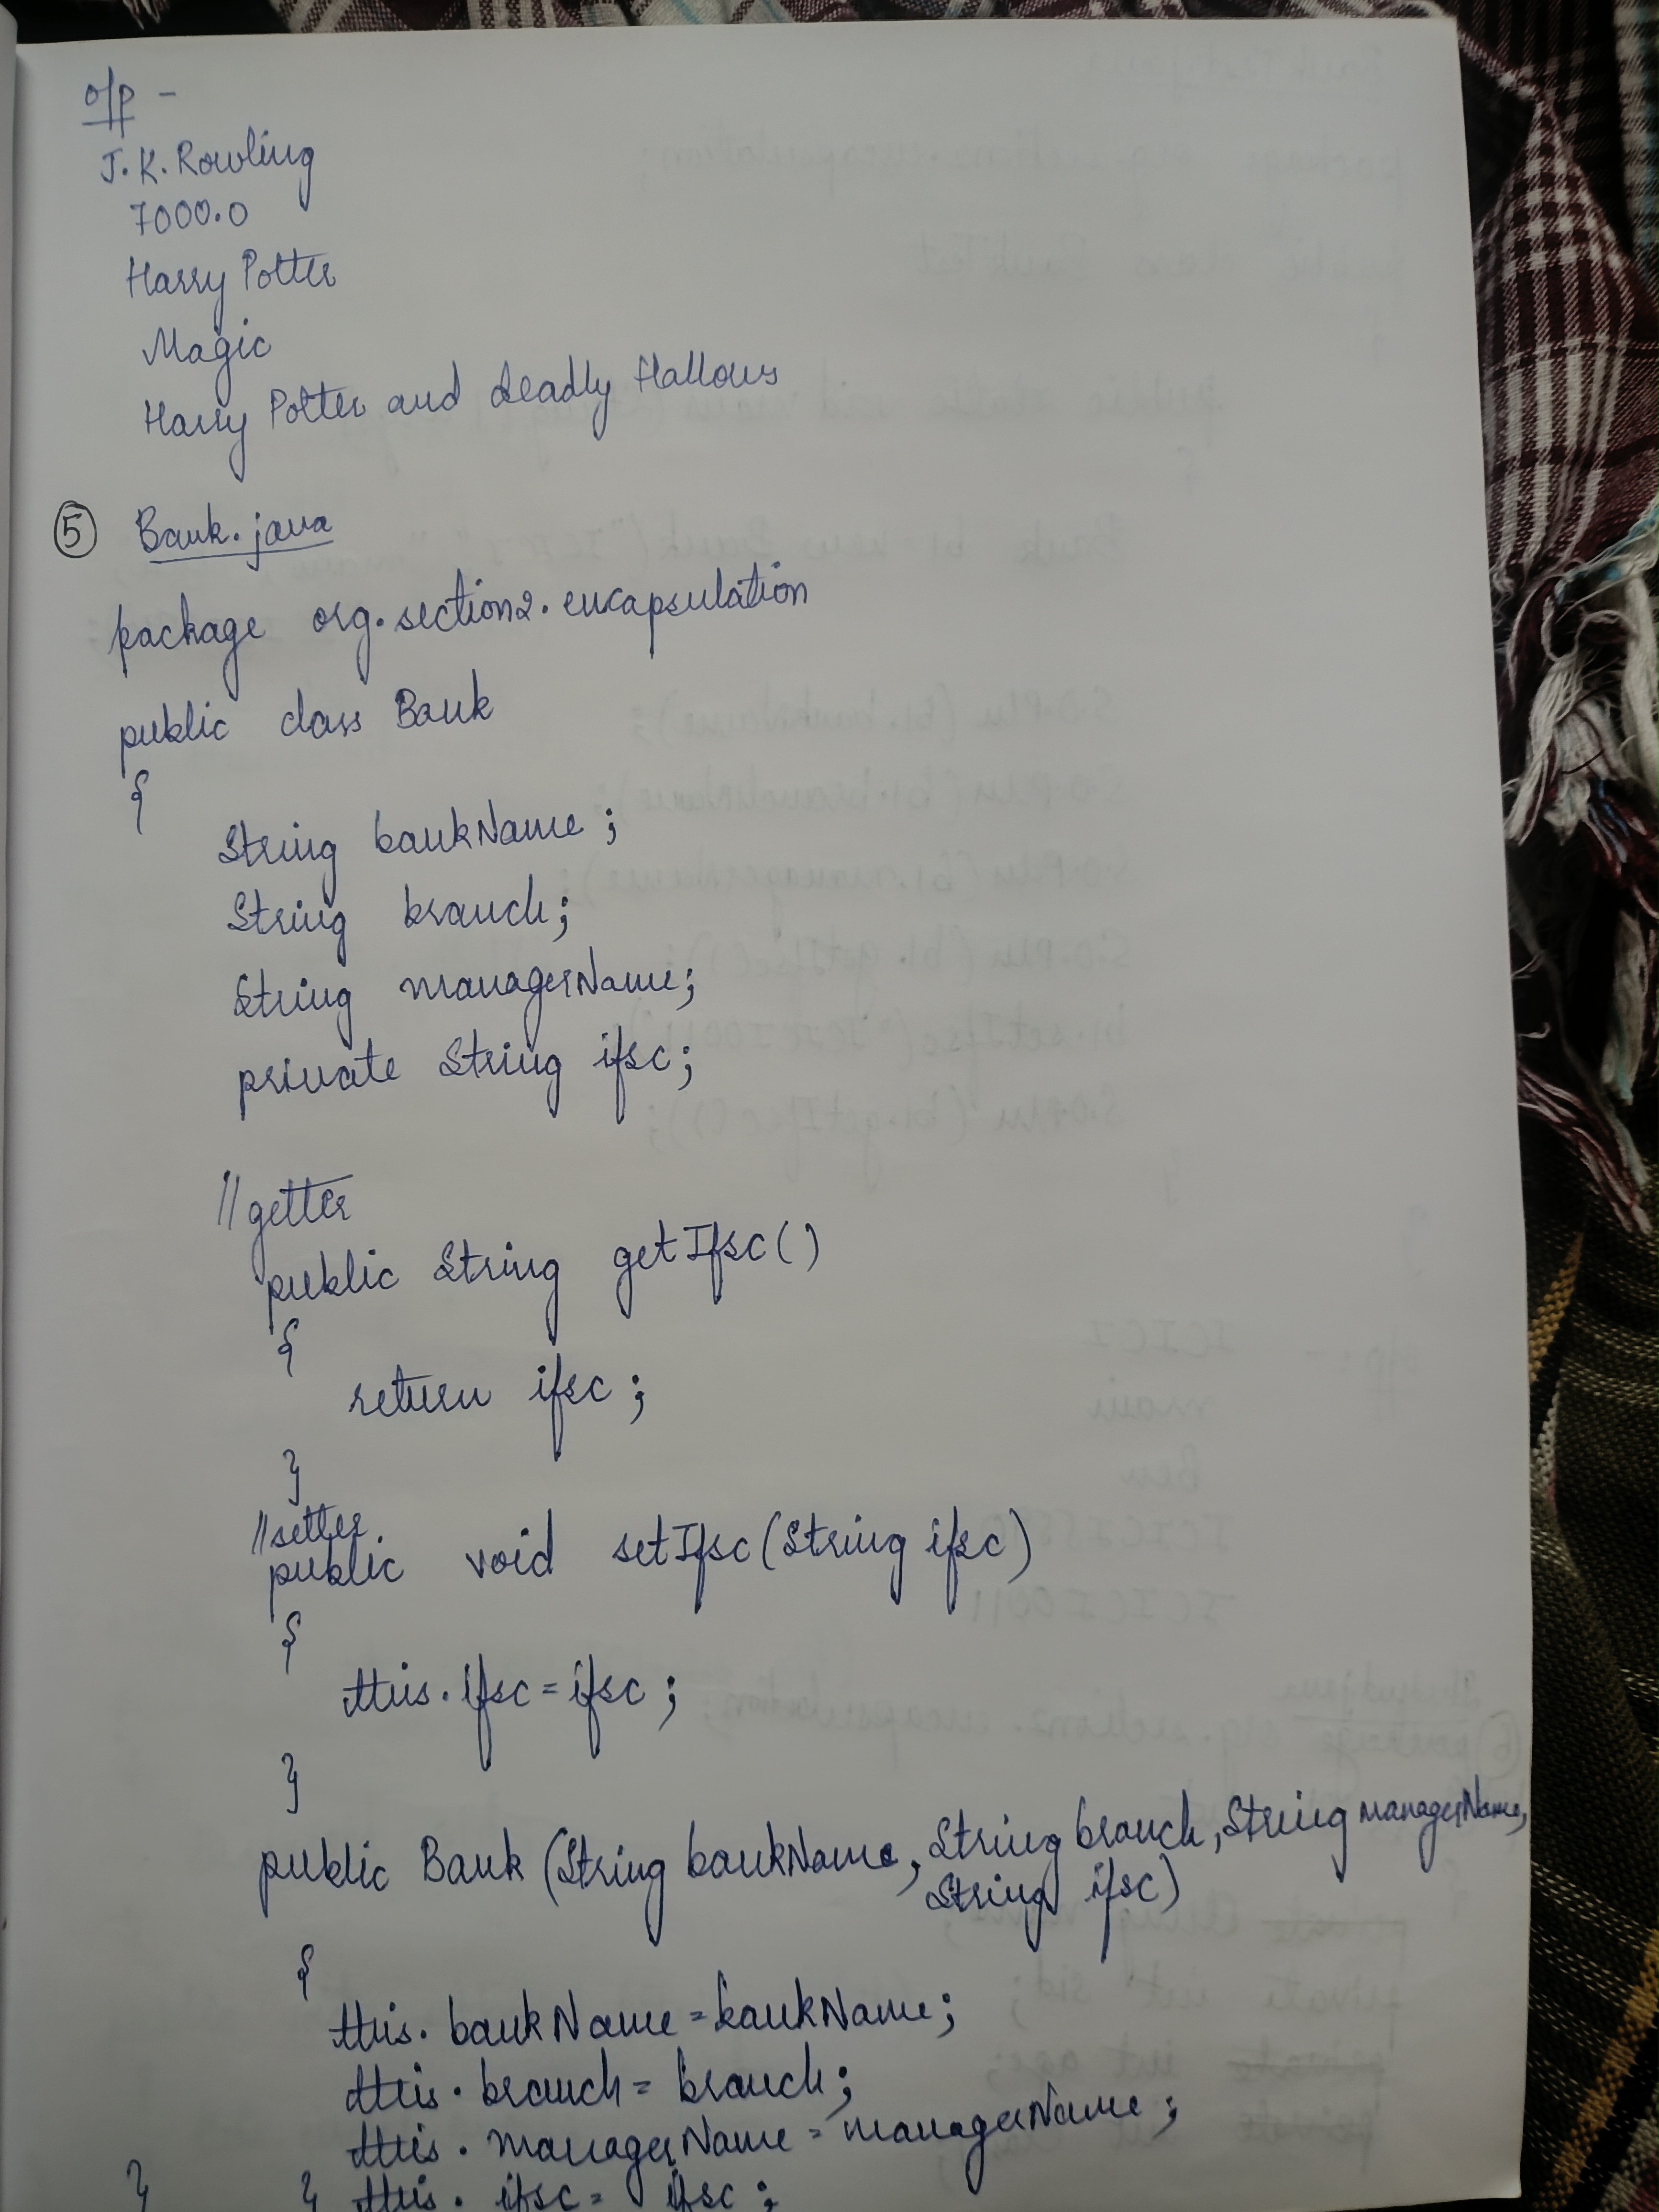 o/p -
J.K. Rowling
7000.0
Harry Potter
Magic
Harry Potter and deadly Hallows
⑤ Bank.java
package org.section2.encapsulation
public class Bank
{
String bankName;
String branch;
String managerName;
private String ifsc;
//getter
public String getIfsc()
{
return ifsc;
}
//setter.
public void setIfsc(String ifsc)
{
this.ifsc=ifsc;
}
public Bank (String bankName, String branch, String managerName,
String ifsc)
{
this.bankName=bankName;
this.branch=branch;
this.managerName=managerName;
} } this.ifsc= ifsc;